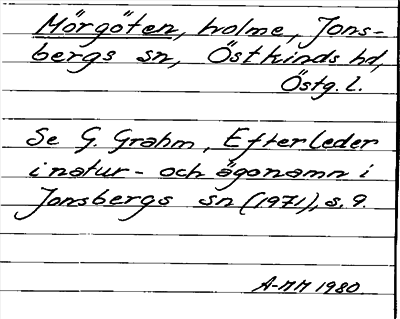 Mörgöten, holme, Jons-
bergs sn, Östkinds hd,
Östg. l.
Se G. Grahm, Efterleder
i natur- och ägonamn i
Jonsbergs sn (1971), s. 9.
A-MM 1980